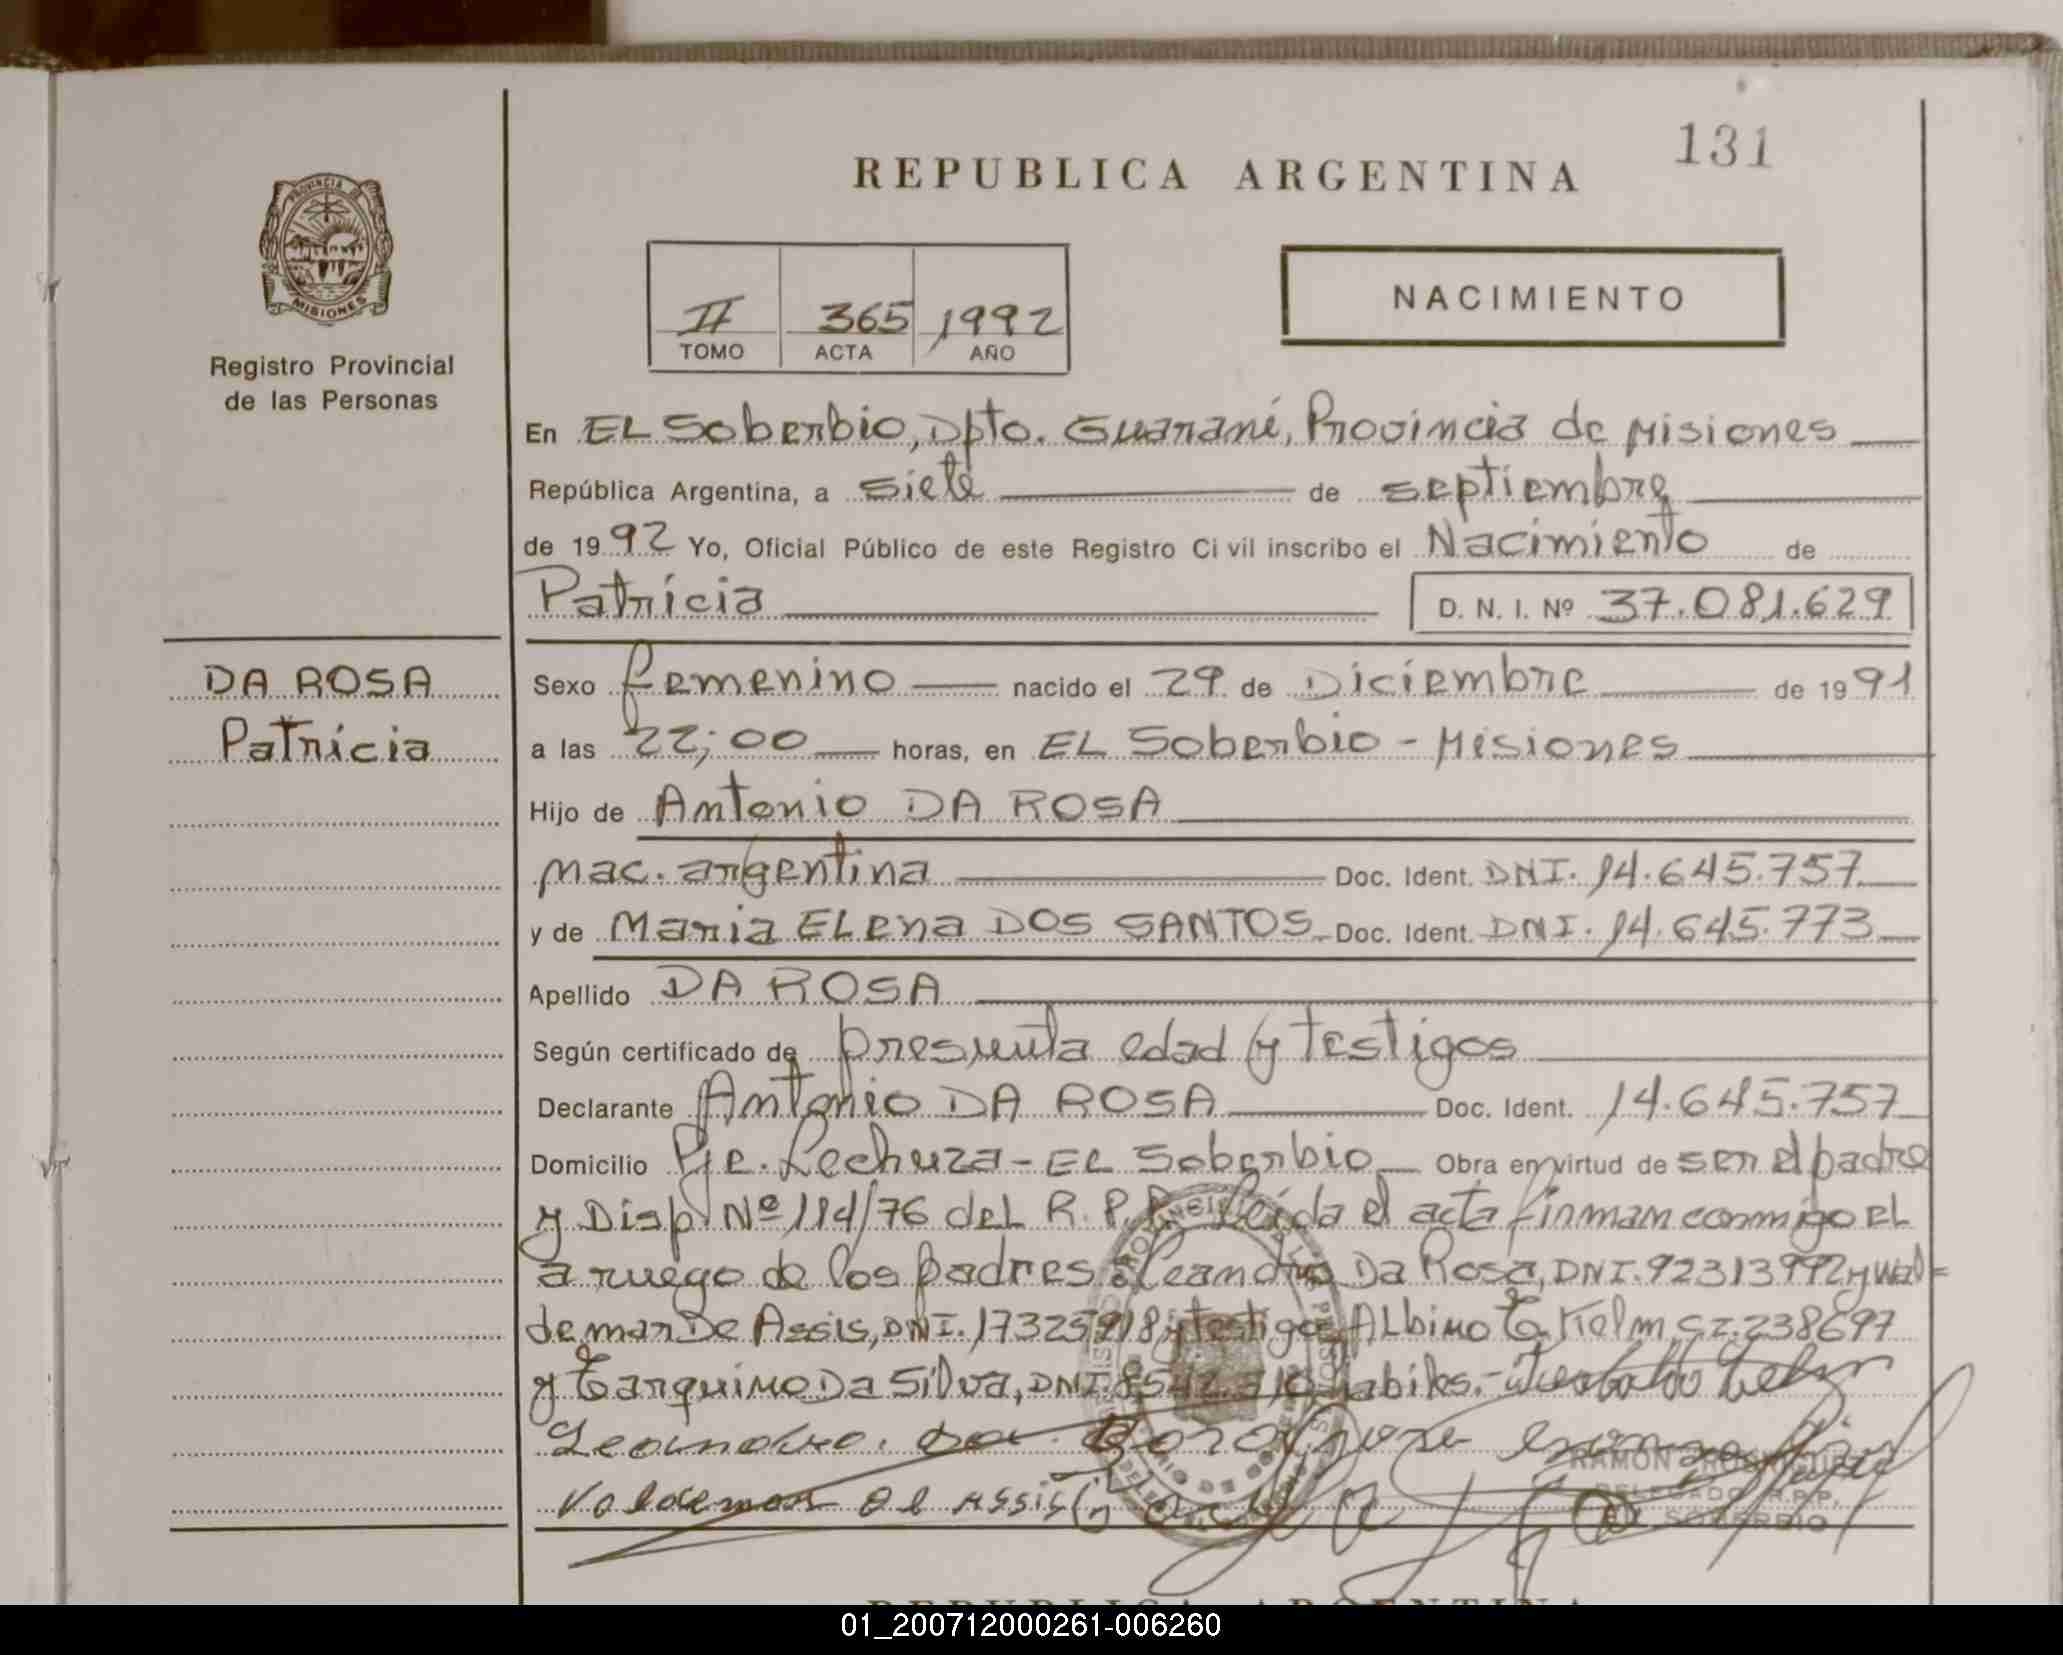 131
REPUBLICA ARGENTINA
PROVINCIA DE
MISIONES
Registro Provincial
de las Personas
II 365 1992
TOMO ACTA AÑO
NACIMIENTO
En EL Soberbio, Dpto. Guaraní, Provincia de Misiones
República Argentina, a siete de septiembre
de 1992 Yo, Oficial Público de este Registro Civil inscribo el Nacimiento de
Patricia D. N. I. Nº 37.081.629
DA ROSA
Patricia
Sexo femenino nacido el 29 de Diciembre de 1991
a las 22;00 horas, en EL Soberbio - Misiones
Hijo de Antonio DA ROSA
nac. argentina Doc. Ident. DNI. 14.645.757
y de Maria ELena DOS SANTOS Doc. Ident. DNI. 14.645.773
Apellido DA ROSA
Según certificado de presunta edad y testigos
Declarante Antonio DA ROSA Doc. Ident. 14.645.757
Domicilio Pje. Lechuza - EL Soberbio Obra en virtud de ser el padre
y Disp. Nº 114/76 del R. P. P. Leída el acta firman conmigo el
a ruego de los padres Leandro Da Rosa, DNI. 92313992 y Wal=
demar De Assis, DNI. 17325918 y testigos ALbino E. Kelm, CI. 238697
y Tarquino Da Silva, DNI. 8542 habiles.-
Leandro da Rosa
Valdemar de Assis
RAMON RODRIGUEZ
DELEGADO R.P.P.
EL SOBERBIO
REPUBLICA ARGENTINA
01_200712000261-006260